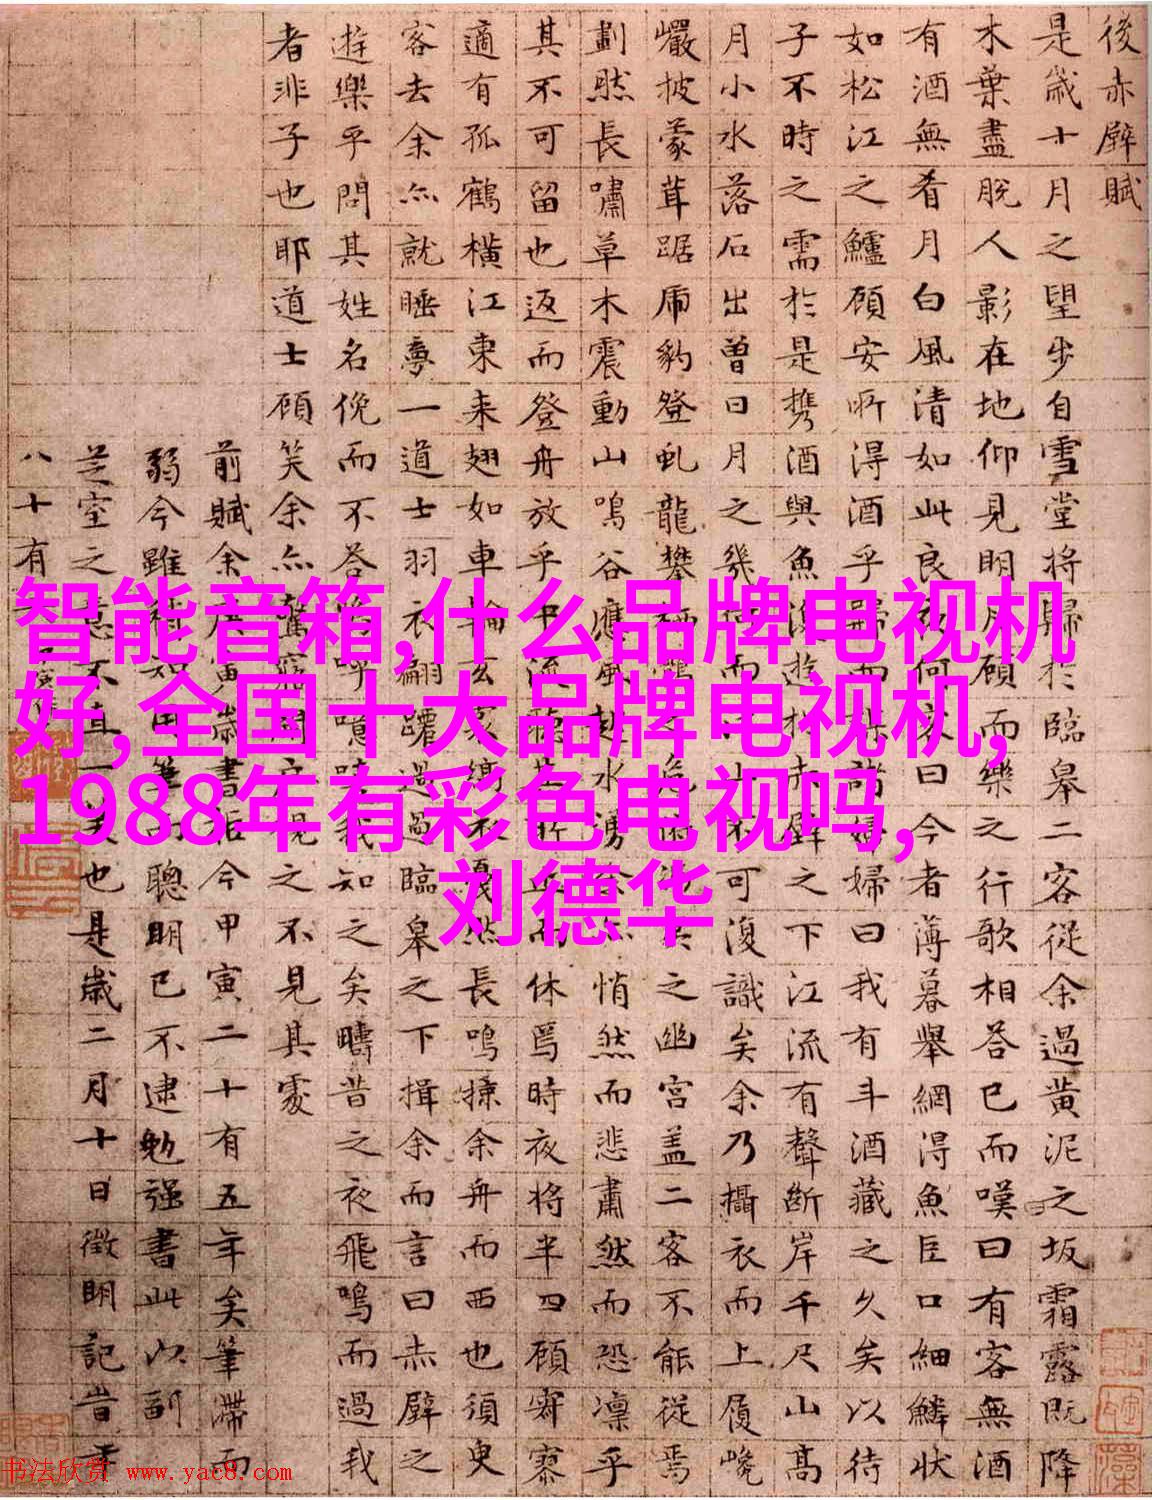 後赤壁賦
是歲十月之望步自雪堂將歸於臨皋二客從余過黃泥之坂霜露既降
木葉盡脫人影在地仰見明月顧而樂之行歌相荅已而嘆曰有客無酒
有酒無肴月白風清如此良夜何客曰今者薄暮舉網得魚巨口細鱗狀
如松江之鱸顧安所得酒乎歸而諸婦婦曰我有斗酒藏之久矣以待
子不時之需於是携酒與魚復遊於赤壁之下江流有聲斷岸千尺山高
月小水落石出曾日月之幾何而江山不可復識矣余乃攝衣而上履巉
巖披蒙茸踞虎豹登虬龍攀栖鶻之危之幽宮蓋二客不能從焉
劃然長嘯草木震動山鳴谷應風起水湧余亦悄然而悲肅然而恐凜乎
其不可留也返而登舟放乎中流聽其所止而休焉時夜將半四顧寂寥
適有孤鶴橫江東來翅如車輪玄裳縞衣戛然長鳴掠余舟而西也須臾
客去余亦就睡夢一道士羽衣翩躚過臨皋之下揖余而言曰赤壁之
遊樂乎問其姓名俛而不荅嗚呼噫嘻我知之矣疇昔之夜飛鳴而過我
者非子也耶道士顧笑余亦驚寤開戶視之不見其處
前賦余庚寅歲書距今甲寅二十有五年矣筆滯而
弱今雖稍知用筆而聰明已不逮勉强書此以副
芝室之意不直一笑也是歲二月十日徵明記昔年
八十有五
智能音箱,什么品牌电视机
好,全国十大品牌电视机,
1988年有彩色电视吗,
刘德华
书法欣赏 www.yac8.com